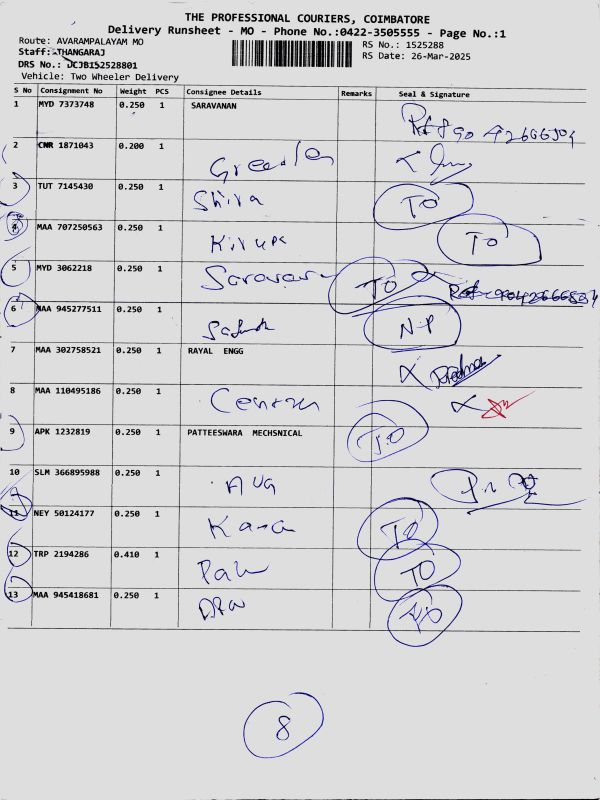 THE PROFESSIONAL COURIERS, COIMBATORE
Delivery Runsheet - MO - Phone No.:0422-3505555 - Page No.:1
Route: AVARAMPALAYAM MO
RS No.: 1525288
Staff: THANGARAJ
RS Date: 26-Mar-2025
DRS No.: DCJB152528801
Vehicle: Two Wheeler Delivery
S No Consignment No Weight PCS Consignee Details Remarks Seal & Signature
1 MYD 7373748 0.250 1 SARAVANAN
2 CNR 1871043 0.200 1
3 TUT 7145430 0.250 1 Shiva TO
4 MAA 707250563 0.250 1 Kirupa TO
5 MYD 3062218 0.250 1 Saravan TO
6 MAA 945277511 0.250 1 N-P
7 MAA 302758521 0.250 1 RAYAL ENGG
8 MAA 110495186 0.250 1
9 APK 1232819 0.250 1 PATTEESWARA MECHSNICAL TO
10 SLM 366895988 0.250 1 AUG
11 NEY 50124177 0.250 1 TO
12 TRP 2194286 0.410 1 TO
13 MAA 945418681 0.250 1 TO
8